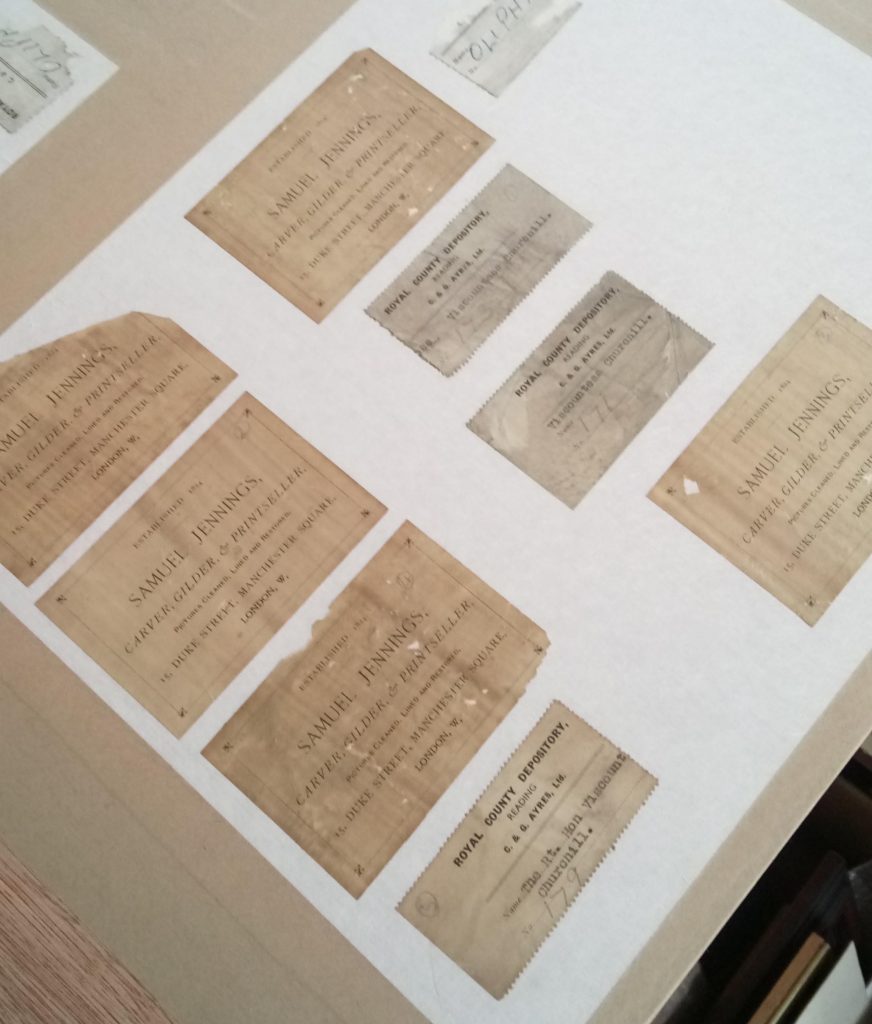 OLIPH
ESTABLISHED
SAMUEL JENNINGS,
CARVER, GILDER, & PRINTSELLER,
PICTURES CLEANED, LINED AND RESTORED.
15, DUKE STREET, MANCHESTER SQUARE,
LONDON, W.
ROYAL COUNTY DEPOSITORY,
READING
C. & G. AYRES, Ltd.
Viscountess Churchill.
ROYAL COUNTY DEPOSITORY,
READING
C. & G. AYRES, Ltd.
Viscountess Churchill.
Name
No.
ESTABLISHED 1824
SAMUEL JENNINGS,
CARVER, GILDER, & PRINTSELLE
PICTURES CLEANED, LINED AND RESTO
15, DUKE STREET, MANCHE
LONDO
ESTABLISHED
AMUEL JENNINGS,
VER, GILDER, & PRINTSELLER,
PICTURES CLEANED, LINED AND RESTORED.
15, DUKE STREET, MANCHESTER SQUARE,
LONDON, W.
ESTABLISHED 1824
SAMUEL JENNINGS,
CARVER, GILDER, & PRINTSELLER,
PICTURES CLEANED, LINED AND RESTORED.
15, DUKE STREET, MANCHESTER SQUARE,
LONDON, W.
ESTABLISHED 1824
SAMUEL JENNINGS,
CARVER, GILDER, & PRINTSELLER,
PICTURES CLEANED, LINED AND RESTORED.
15, DUKE STREET, MANCHESTER SQUARE,
LONDON, W.
ROYAL COUNTY DEPOSITORY,
READING
C. & G. AYRES, Ltd.
Name The Rt. Hon Viscount
Churchill.
No. 179